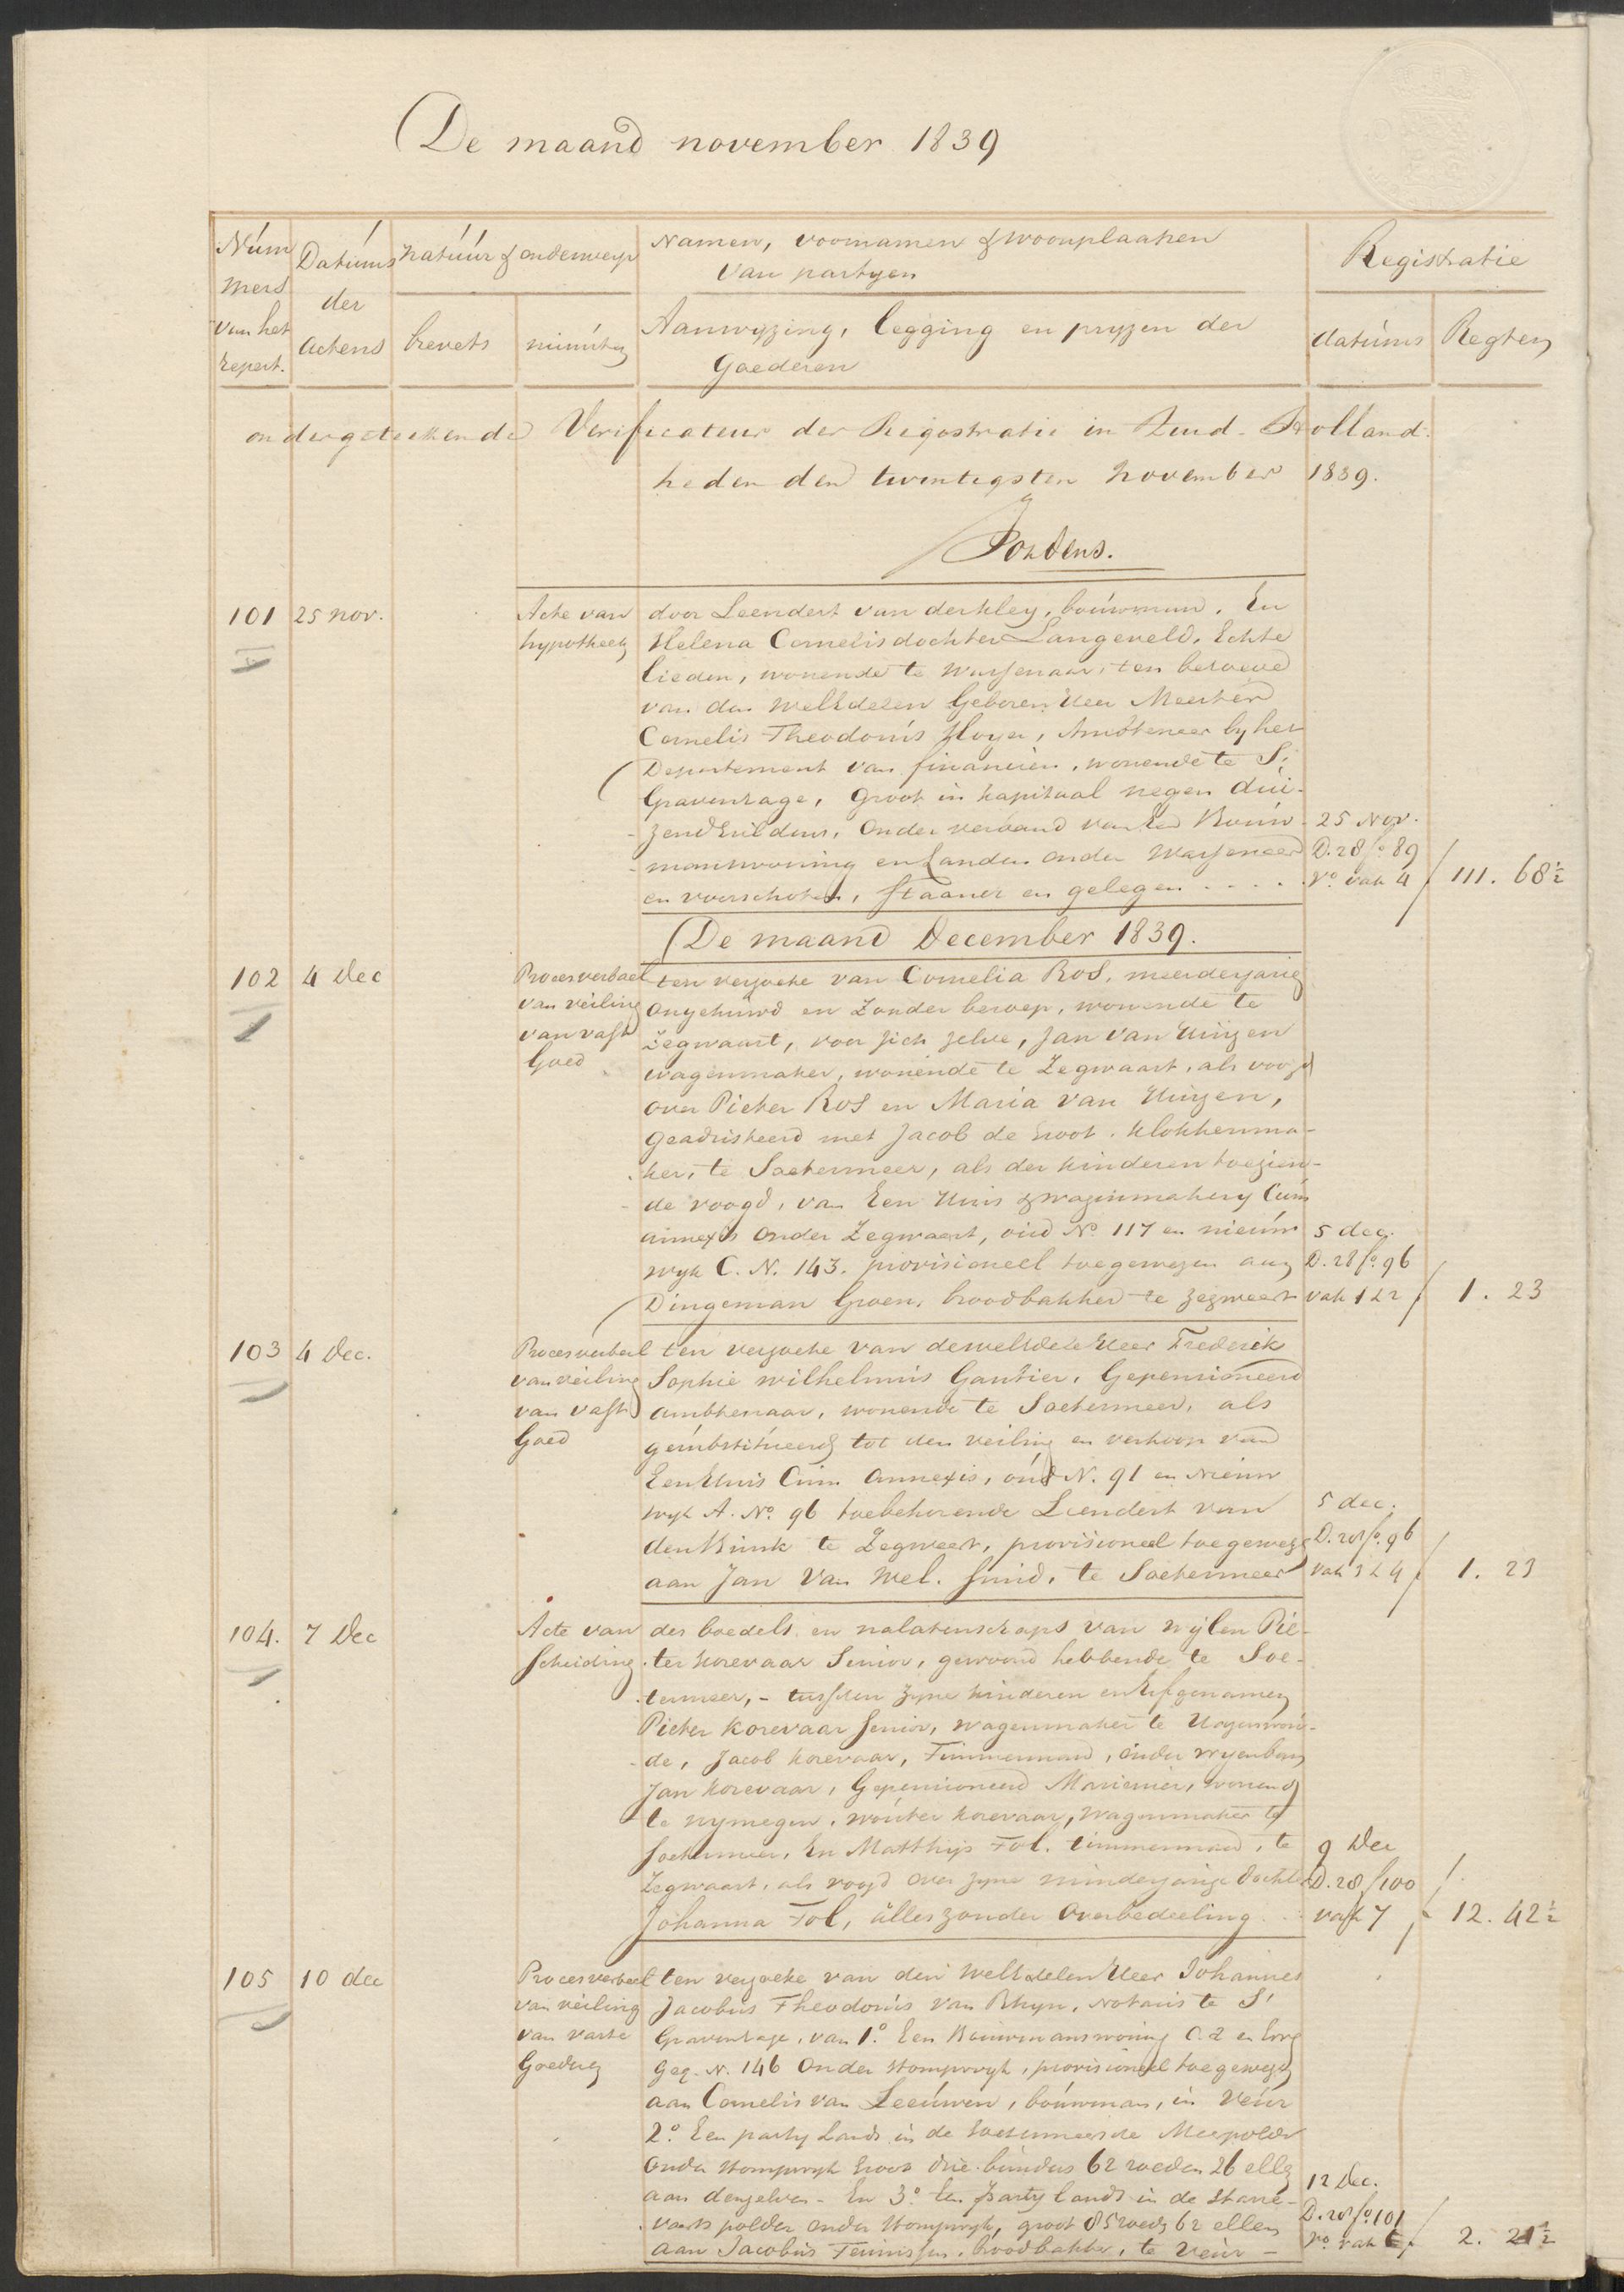 De maand november 1839
Núm
mers
van het
repert.
Datúms
der
actens
natúúr & onderwerp
brevets
minúten
Namen, voornamen & woonplaatsen
van partyen
Aanwyzing, legging en pryzen der
Goederen
Registratie
datúms
Regten
ondergeteekende Verificateur der Registratie in Zuid-Holland
heden den twintigsten November 1839.
101
25 nov.
Acte van
hypotheek
door Leendert van der kley, boúwman, En
Helena Cornelisdochter Langeveld, Echte
lieden, wonende te Wassenaar, ten behoeve
van den WelEdelen Geboren Heer Meester
Cornelis Theodorús Hoyer, Ambtenaar by het
Departement van financien, wonende te S:
Gravenhage, groot in kapitaal negen dúi-
zend Guldens, onder verband van Een Boúw-
manswoning en Landen onder Wassenaar
en voorschoten, staande en gelegen . . . .
25 Nov.
D. 28 fo. 89
Vo. vak 4
111. 68½
De maand December 1839.
102
4 Dec
Procesverbaal
van veiling
van vast
Goed
ten verzoeke van Cornelia Ros, meerderjarig
ongehúwd en Zonder beroep, wonende te
Zegwaart, voor zich zelve, Jan van Húizen
wagenmaker, wonende te Zegwaart, als voogd
over Pieter Ros en Maria van Húizen,
geadsisteerd met Jacob de Groot, klokkenma-
ker, te Soetermeer, als der kinderen toezien-
de voogd, van Een Húis & wagenmakery Cúm
annexis onder Zegwaart, oúd No. 117 en nieúw
wyk C. N. 143. provisioneel toegewezen aan
Dingeman Groen, broodbakker te Zegwaart
5 dec.
D. 28 fo. 96
vak 1 & 2
1. 23
103
4 Dec.
Procesverbaal
van veiling
van vast
Goed
ten verzoeke van den welEdele Heer Frederik
Sophie wilhelmús Gautier, Gepensioneerd
ambtenaar, wonende te Soetermeer, als
gesúbstitúeerd tot den veiling en verkoop van
Een Húis Cúm Annexis, oúd N. 91 en Nieúw
wyk A. No. 96 toebehorende Leendert van
den Búnk te Zegwaart, provisioneel toegewezen
aan Jan Van Wel, smid, te Soetermeer
5 dec.
D. 28 fo. 96
vak 3 & 4
1. 23
104.
7 Dec
Acte van
Scheiding
des boedels en nalatenschaps van wylen Pie-
ter Korevaar Senior, gewoond hebbende te Soe-
termeer, - tusschen zyne kinderen en Erfgenamen
Pieter Korevaar Junior, wagenmaker te Hazerswou-
de, Jacob Korevaar, Timmerman, onder
Jan Korevaar, Gepensioneerd Marinier, wonend
te nymegen, woúter Korevaar, wagenmaker te
Soetermeer, En Matthijs Fol. timmerman, te
Zegwaart, als voogd over zyne minderjarige dochter
Johanna Fol, alles zonder Overbedeeling
9 Dec
D. 28 f 100
vak 7
12. 42½
105
10 dec
Procesverbaal
van veiling
van vaste
Goederen
ten verzoeke van den WelEdelen Heer Johannes
Jacobús Theodorús van Rhyn, Notaris te S'
Gravenhage, van 1o. Een Boúwmanswoning C. 2 en
geq. N. 146 onder Stompwyk, provisioneel toegewezen
aan Cornelis van Leeúwen, boúwman, in Veúr
2o. Een party Lands in de Soetermeersche Meerpolder
onder Stompwyk Groot drie búnders 62 roeden 26 ellen
aan denzelven - En 3o. Een Party lands in de Starre-
vaarts polder onder Stompwyk, groot 85 roeden 62 ellen
aan Jacobús Teúnissen, broodbakker, te Veúr -
12 Dec.
D. 28 fo. 101
Vo. vak
2. 21½